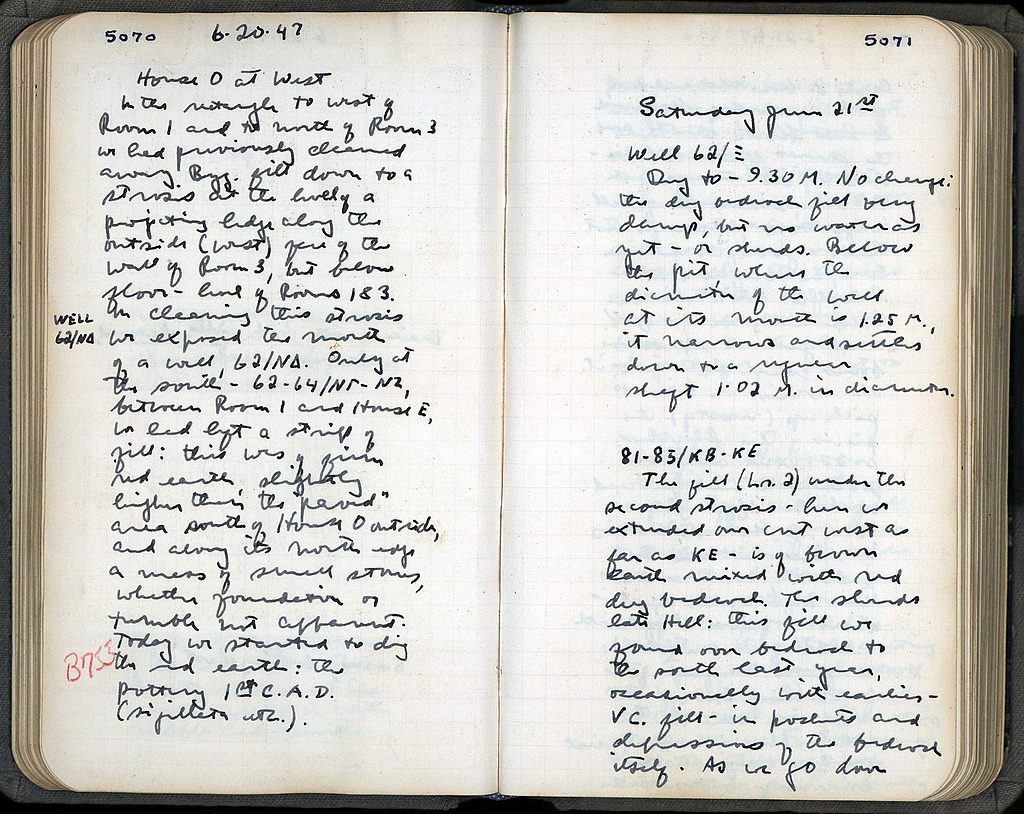 5070 6-20-47
House O at West
In the rectangle to west of
Room 1 and to north of Room 3
we had previously cleaned
away Byz. fill down to a
strosis at the level of a
projecting ledge along the
outside (west) face of the
wall of Room 3, but below
floor-level of Rooms 1 & 3.
In cleaning this strosis
WELL
62/ΝΔ
we exposed the mouth
of a well, 62/ΝΔ. Only at
the south - 62-64/ΝΓ-ΝΖ,
between Room 1 and House E,
we had left a strip of
fill: this was of firm
red earth, slightly
higher than the "paved"
area south of House O outside,
and along its north edge
a mass of small stones,
whether foundation or
tumble not apparent.
Today we started to dig
B755
the red earth: the
pottery 1st C. A.D.
(sigillata etc.).
5071
Saturday June 21st
Well 62/Ξ
Dug to - 9.30 M. No change:
the dug bedrock fill very
damp, but no water as
yet - or sherds. Below
the pit where the
diameter of the well
at its mouth is 1.25 M.,
it narrows and settles
down to a regular
shaft 1.02 M. in diameter.
81-83/ΚΒ-ΚΕ
The fill (Lot 2) under the
second strosis - here we
extended our cut west as
far as ΚΕ - is of brown
earth mixed with red
dug bedrock. The sherds
late Hell: this fill we
found over bedrock to
the south last year,
occasionally with earlier -
V C. fill - in pockets and
depressions of the bedrock
itself. As we go down